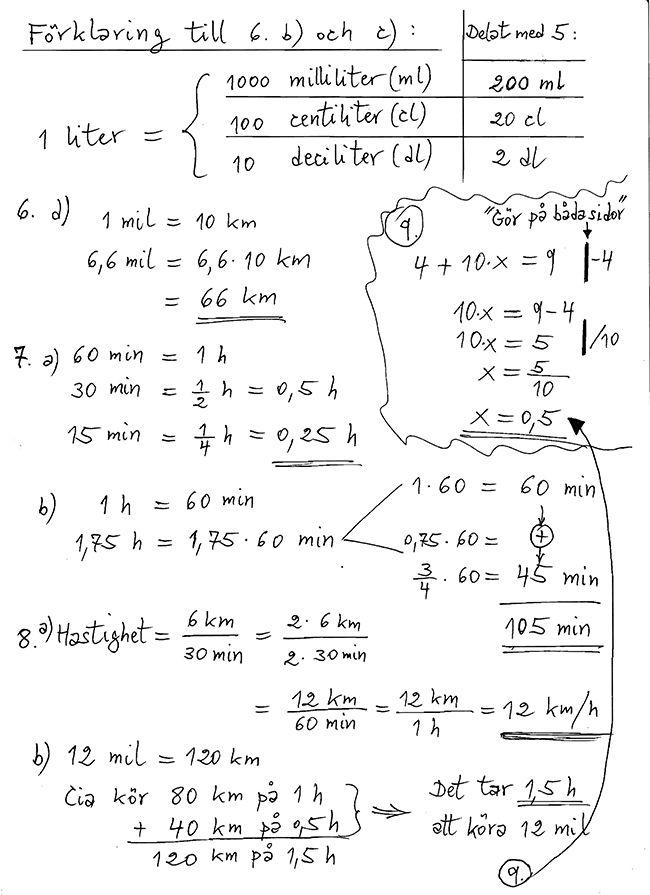 Förklaring till 6. b) och c) :
Delat med 5 :
1 liter =
1000 milliliter (ml) 200 ml
100 centiliter (cl) 20 cl
10 deciliter (dl) 2 dl
6. d) 1 mil = 10 km
6,6 mil = 6,6 · 10 km
= 66 km
7. a) 60 min = 1 h
30 min = 1/2 h = 0,5 h
15 min = 1/4 h = 0,25 h
9.
"Gör på båda sidor"
4 + 10·x = 9 | -4
10·x = 9 - 4
10·x = 5 | /10
x = 5/10
x = 0,5
b) 1 h = 60 min
1,75 h = 1,75 · 60 min
1 · 60 = 60 min
0,75 · 60 = +
3/4 · 60 = 45 min
105 min
8. a) Hastighet = 6 km / 30 min = 2 · 6 km / 2 · 30 min
= 12 km / 60 min = 12 km / 1 h = 12 km/h
b) 12 mil = 120 km
Cia kör 80 km på 1 h
+ 40 km på 0,5 h
120 km på 1,5 h
⇒ Det tar 1,5 h
att köra 12 mil
9.